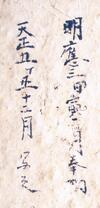 明應三甲寅 月奉
天正五丁丑十二月 写之